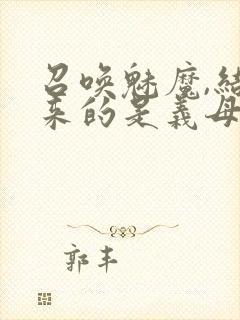 召唤魅魔,结
来的是义母
郭丰